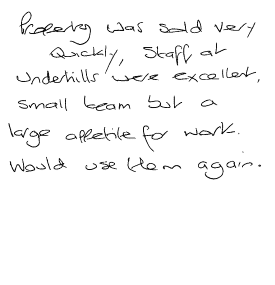 Property was sold very
Quickly, Staff at
Underhills were excellent,
small team but a
large appetite for work.
Would use them again.